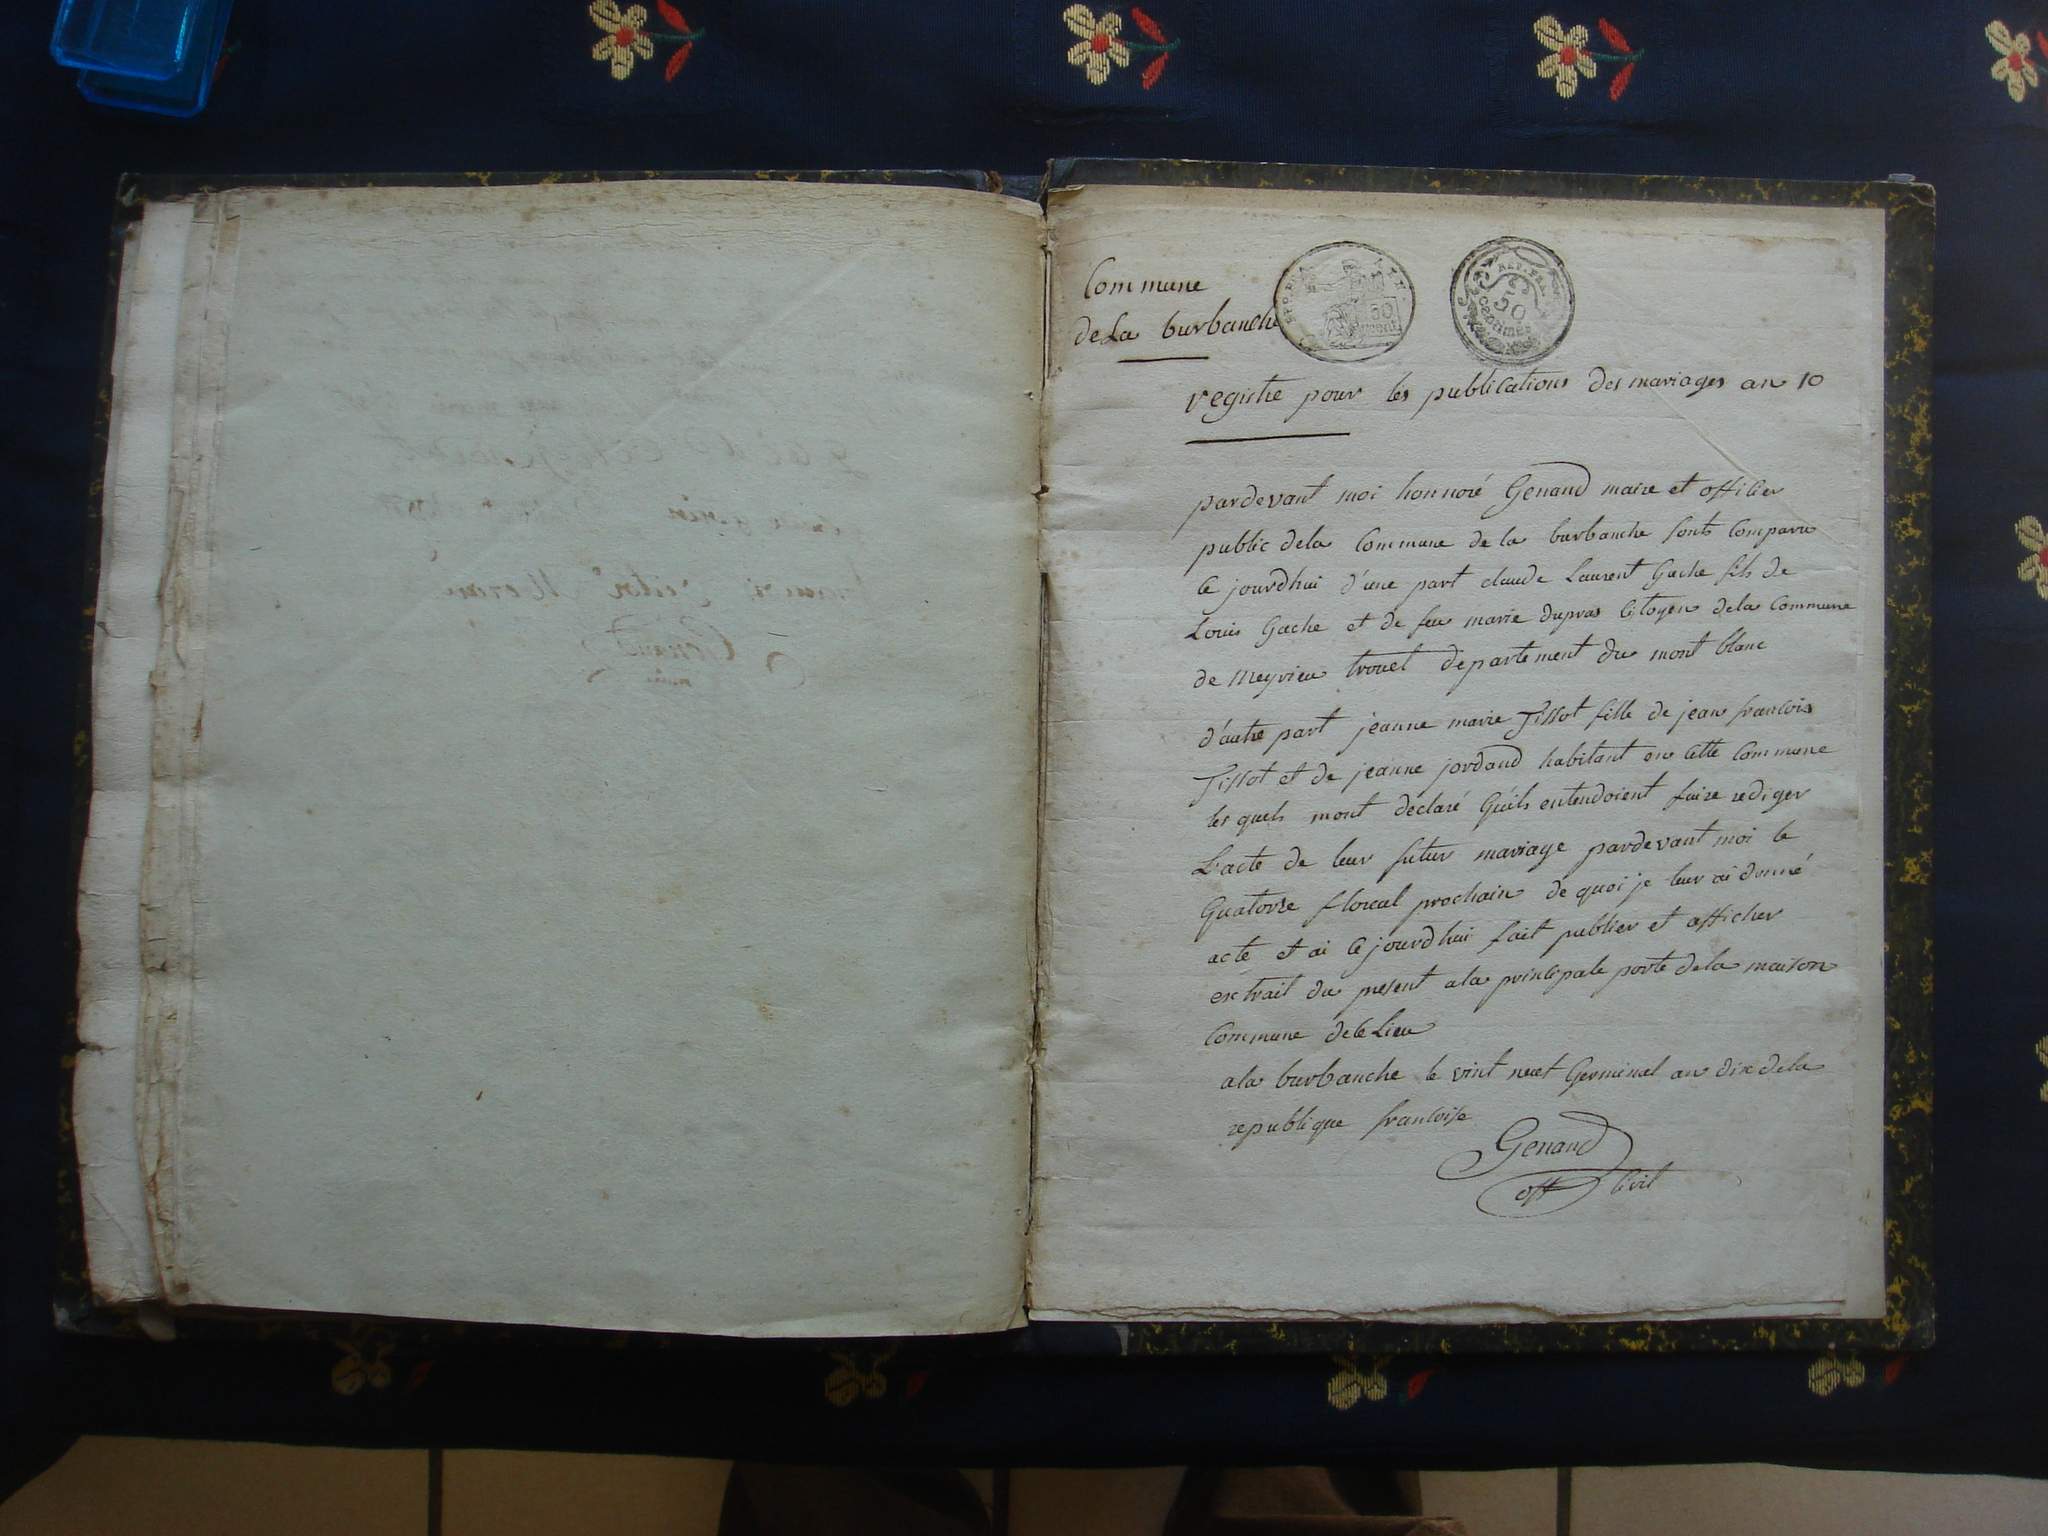 Commune
de La burbanche
REP. FRA
50
cent
REP. FRA
50
centimes
registre pour les publications des mariages an 10
pardevant moi honnoré Genand maire et officier
public dela Commune de la burbanche sonts Comparu
ce jourdhui d'une part claude Laurent Gache fils de
Louis Gache et de feu marie dupras Citoyen dela Commune
de Meyrieu trouet département du mont blanc
d'autre part jeanne marie Tissot fille de jean francois
Tissot et de jeanne jordand habitant en cette Commune
les quels mont declaré Quils entendoient faire rediger
L'acte de leur futur mariage pardevant moi le
Quatorze floreal prochain de quoi je leur ai donné
acte et ai ce jourdhui fait publier et afficher
extrait du present ala principale porte dela maison
Commune dece Lieu
ala burbanche le vint neuf Germinal an dix dela
republique francoise
Genand
off Civil